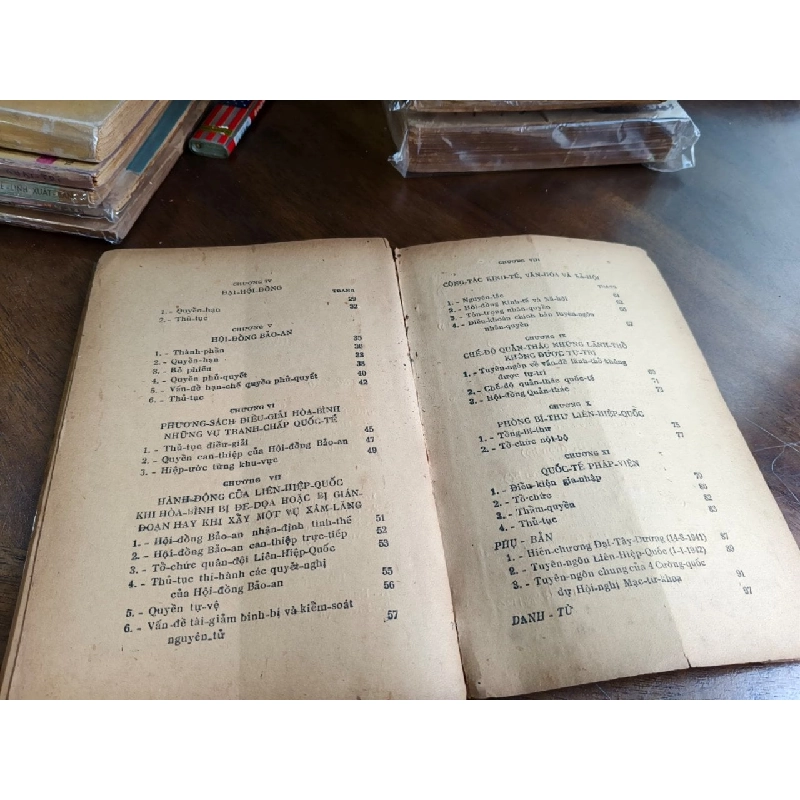 CHƯƠNG IV
ĐẠI-HỘI-ĐỒNG
TRANG
1. - Quyền-hạn 29
2. - Thủ-tục 32
CHƯƠNG V
HỘI-ĐỒNG BẢO-AN
1. - Thành-phần 35
2. - Quyền-hạn 36
3. - Bỏ phiếu 38
4. - Quyền phủ-quyết 38
5. - Vấn-đề hạn-chế quyền phủ-quyết 40
6. - Thủ-tục 42
CHƯƠNG VI
PHƯƠNG-SÁCH ĐIỀU-GIẢI HÒA-BÌNH
NHỮNG VỤ TRANH-CHẤP QUỐC-TẾ
1. - Thủ-tục điều-giải 45
2. - Quyền can-thiệp của Hội-đồng Bảo-an 47
3. - Hiệp-ước từng khu-vực 49
CHƯƠNG VII
HÀNH-ĐỘNG CỦA LIÊN-HIỆP-QUỐC
KHI HÒA-BÌNH BỊ ĐE-DỌA HOẶC BỊ GIÁN-
ĐOẠN HAY KHI XẨY MỘT VỤ XÂM-LĂNG
1. - Hội-đồng Bảo-an nhận-định tình-thế 51
2. - Hội-đồng Bảo-an can-thiệp trực-tiếp 52
3. - Tổ-chức quân-đội Liên-Hiệp-Quốc 53
4. - Thủ-tục thi-hành các quyết-nghị
của Hội-đồng Bảo-an 55
5. - Quyền tự-vệ 56
6. - Vấn-đề tài-giảm binh-bị và kiểm-soát
nguyên-tử 57
CHƯƠNG VIII
CÔNG-TÁC KINH-TẾ, VĂN-HÓA VÀ XÃ-HỘI
TRANG
1. - Nguyên-tắc
2. - Hội-đồng Kinh-tế và Xã-hội
3. - Tôn-trọng nhân-quyền
4. - Điều-khoản chính bản Tuyên-ngôn
nhân-quyền
CHƯƠNG IX
CHẾ-ĐỘ QUẢN-THÁC NHỮNG LÃNH-THỔ
KHÔNG ĐƯỢC TỰ-TRỊ
1. - Tuyên-ngôn về vấn-đề lãnh-thổ không
được tự-trị
2. - Chế-độ quản-thác quốc-tế 71
3. - Hội-đồng Quản-thác 73
CHƯƠNG X
PHÒNG BÍ-THƯ LIÊN-HIỆP-QUỐC
1. - Tổng-Bí-thư 75
2. - Tổ-chức nội-bộ 77
CHƯƠNG XI
QUỐC-TẾ PHÁP-VIỆN
1. - Điều-kiện gia-nhập 79
2. - Tổ-chức 80
3. - Thẩm-quyền 82
4. - Thủ-tục 83
PHỤ - BẢN
1. - Hiến-chương Đại-Tây-Dương (14-8-1941) 87
2. - Tuyên-ngôn Liên-Hiệp-Quốc (1-1-1942) 89
3. - Tuyên-ngôn chung của 4 Cường-quốc
dự Hội-nghị Mạc-tư-khoa 91
DANH - TỪ 97